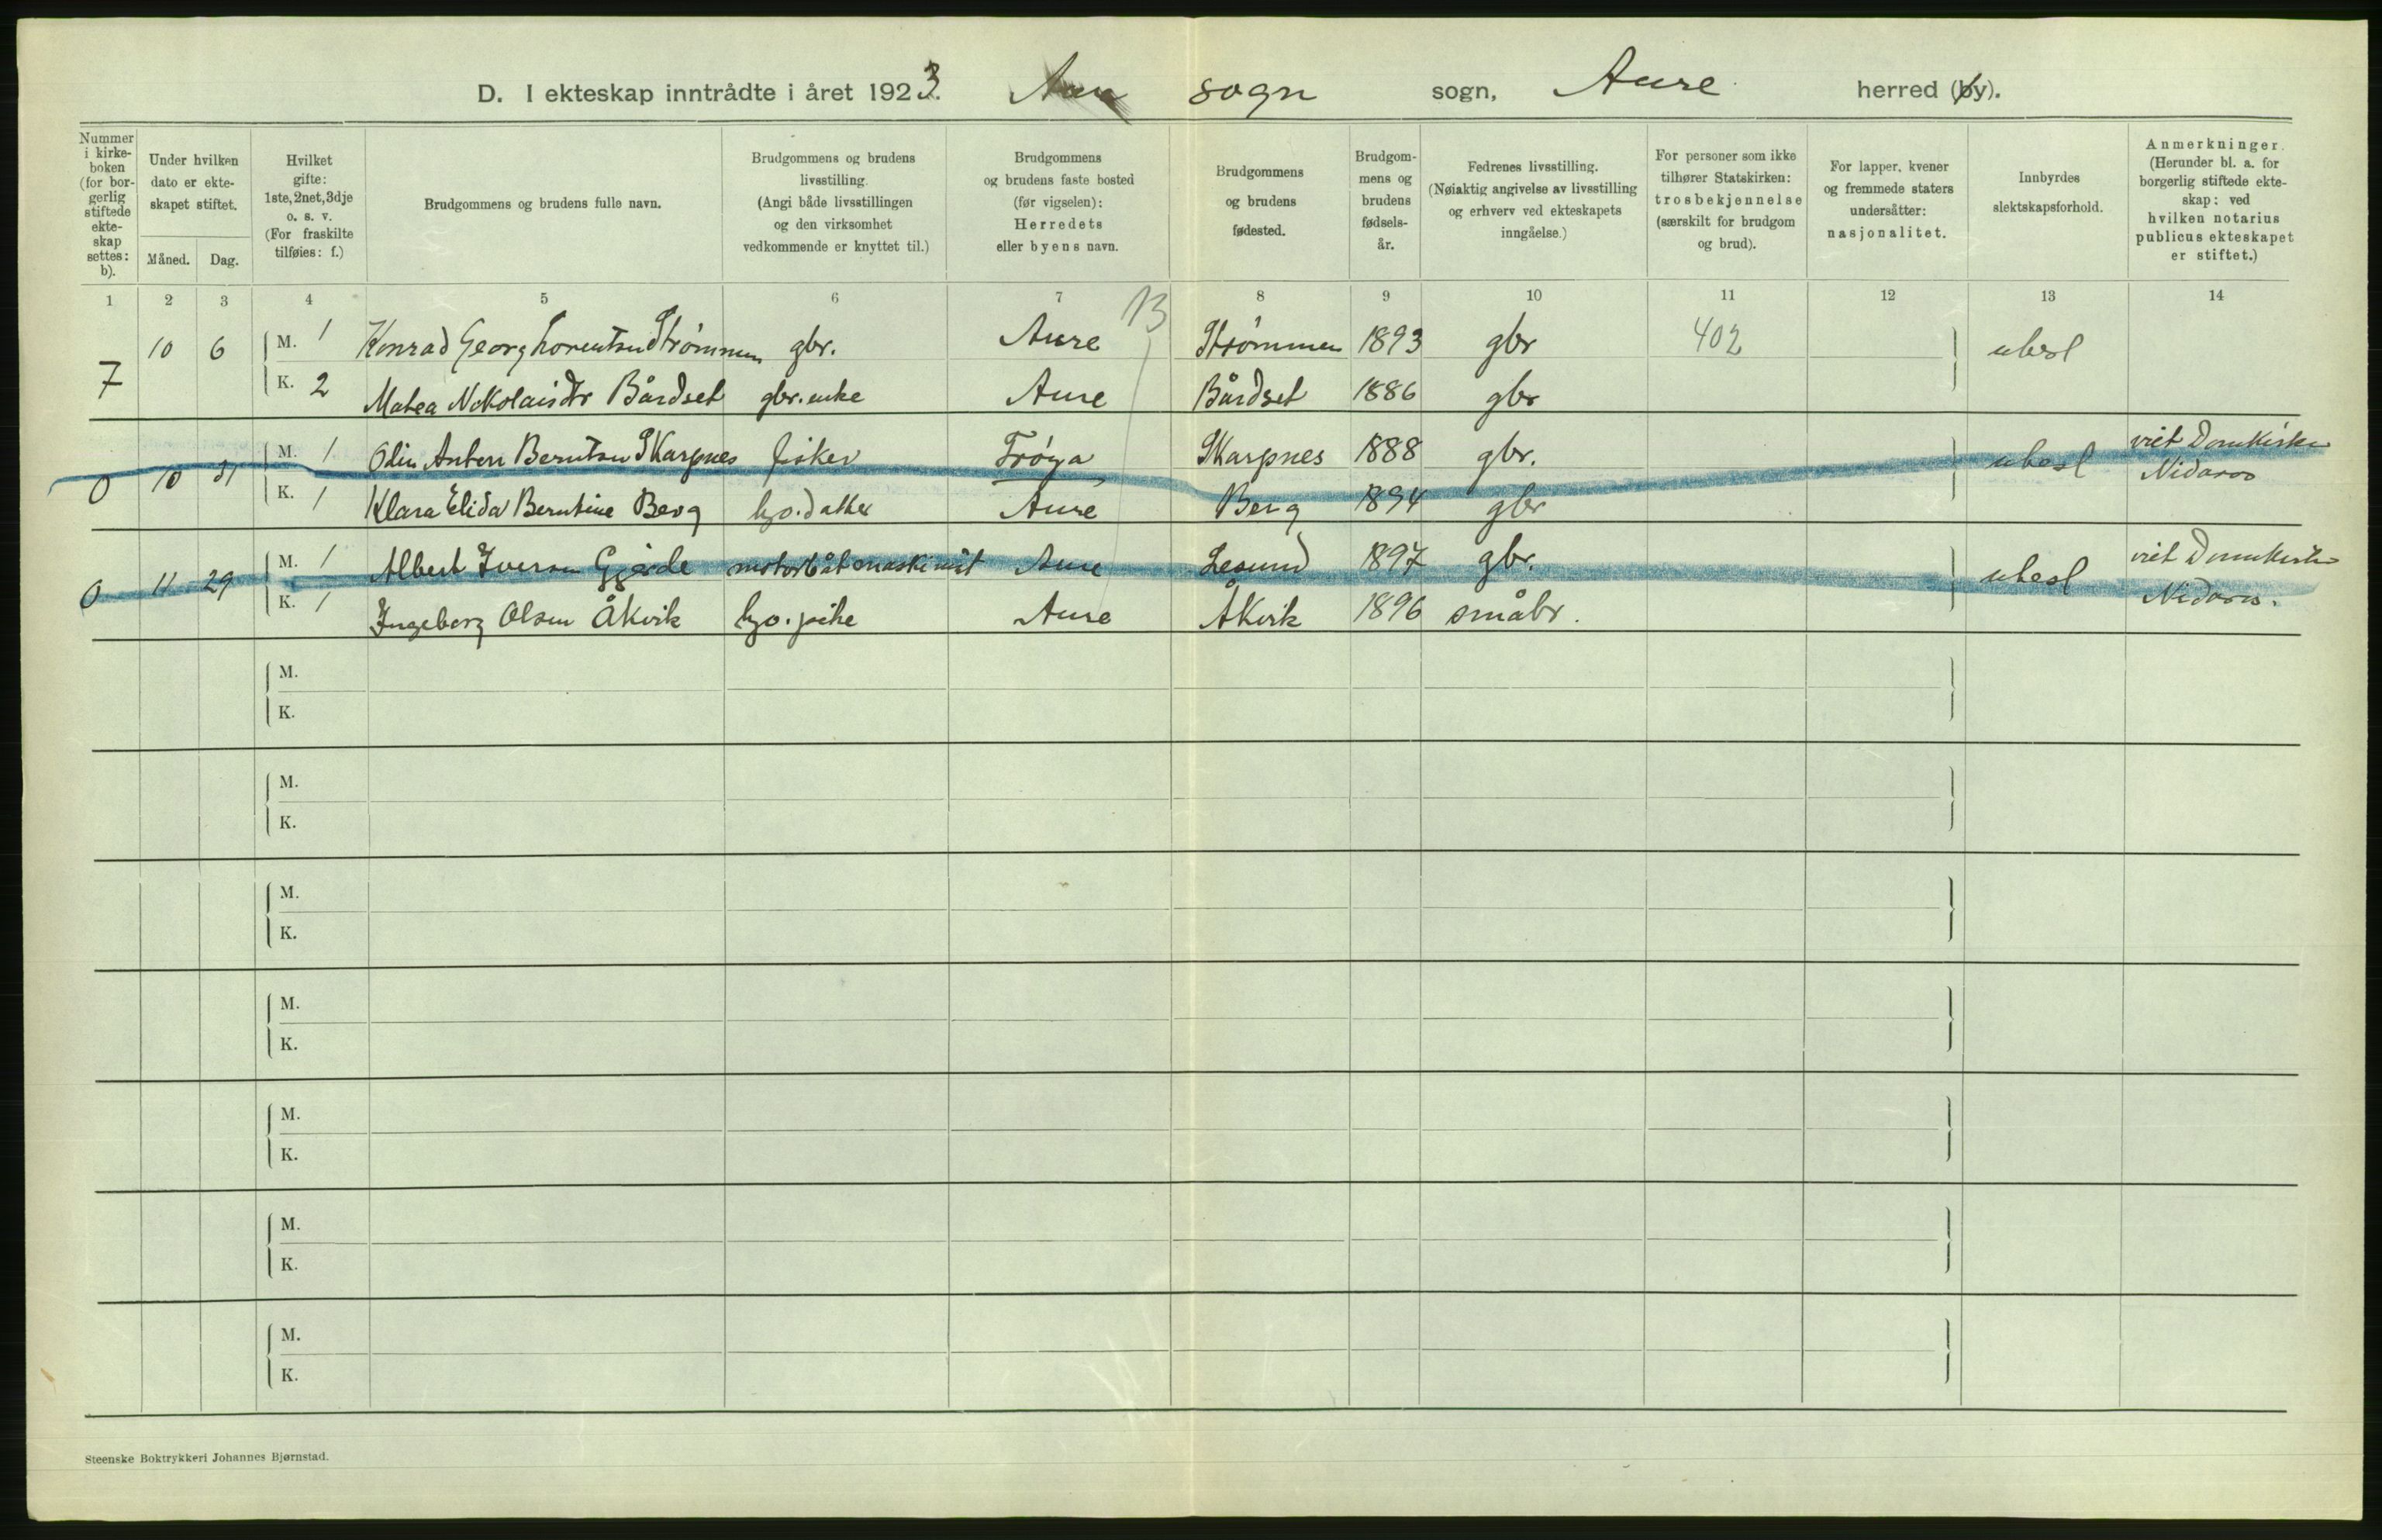 D. I ekteskap inntrådte i året 1923. Aure sogn sogn, Aure herred (by).
Nummer i kirke-boken (for bor-gerlig stiftede ekte-skap settes: b).
Under hvilken dato er ekte-skapet stiftet.
Måned. Dag.
Hvilket gifte: 1ste, 2net, 3dje o. s. v. (For fraskilte tilføies: f.)
Brudgommens og brudens fulle navn.
Brudgommens og brudens livsstilling. (Angi både livsstillingen og den virksomhet vedkommende er knyttet til.)
Brudgommens og brudens faste bosted (før vigselen): Herredets eller byens navn.
Brudgommens og brudens fødested.
Brudgom-mens og brudens fødsels-år.
Fedrenes livsstilling. (Nøiaktig angivelse av livsstilling og erhverv ved ekteskapets inngåelse.)
For personer som ikke tilhører Statskirken: trosbekjennelse (særskilt for brudgom og brud).
For lapper, kvener og fremmede staters undersåtter: nasjonalitet.
Innbyrdes slektskapsforhold.
Anmerkninger. (Herunder bl. a. for borgerlig stiftede ekte-skap: ved hvilken notarius publicus ekteskapet er stiftet.)
1 2 3 4 5 6 7 8 9 10 11 12 13 14
13
7 10 6 M. 1 Konrad Georg Lorentsen Strømmen gbr. Aure Strømmen 1893 gbr 402 ubesl
K. 2 Matea Nikolaisdtr Bårdset gbr.enke Aure Bårdset 1886 gbr
0 10 31 M. 1 Olin Anton Berntsen Skarpnes fisker Frøya Skarpnes 1888 gbr. ubesl viet Domkirken
K. 1 Klara Elida Berntine Berg hjo.datter Aure Berg 1894 gbr Nidaros
0 11 29 M. 1 Albert Iversen Gjerde motorbåtmaskinist Aure Lesund 1897 gbr. ubesl viet Domkirken
K. 1 Ingeborg Olsen Åkvik hjo. pike Aure Åkvik 1896 småbr. Nidaros.
M.
K.
M.
K.
M.
K.
M.
K.
M.
K.
M.
K.
M.
K.
Steenske Boktrykkeri Johannes Bjørnstad.